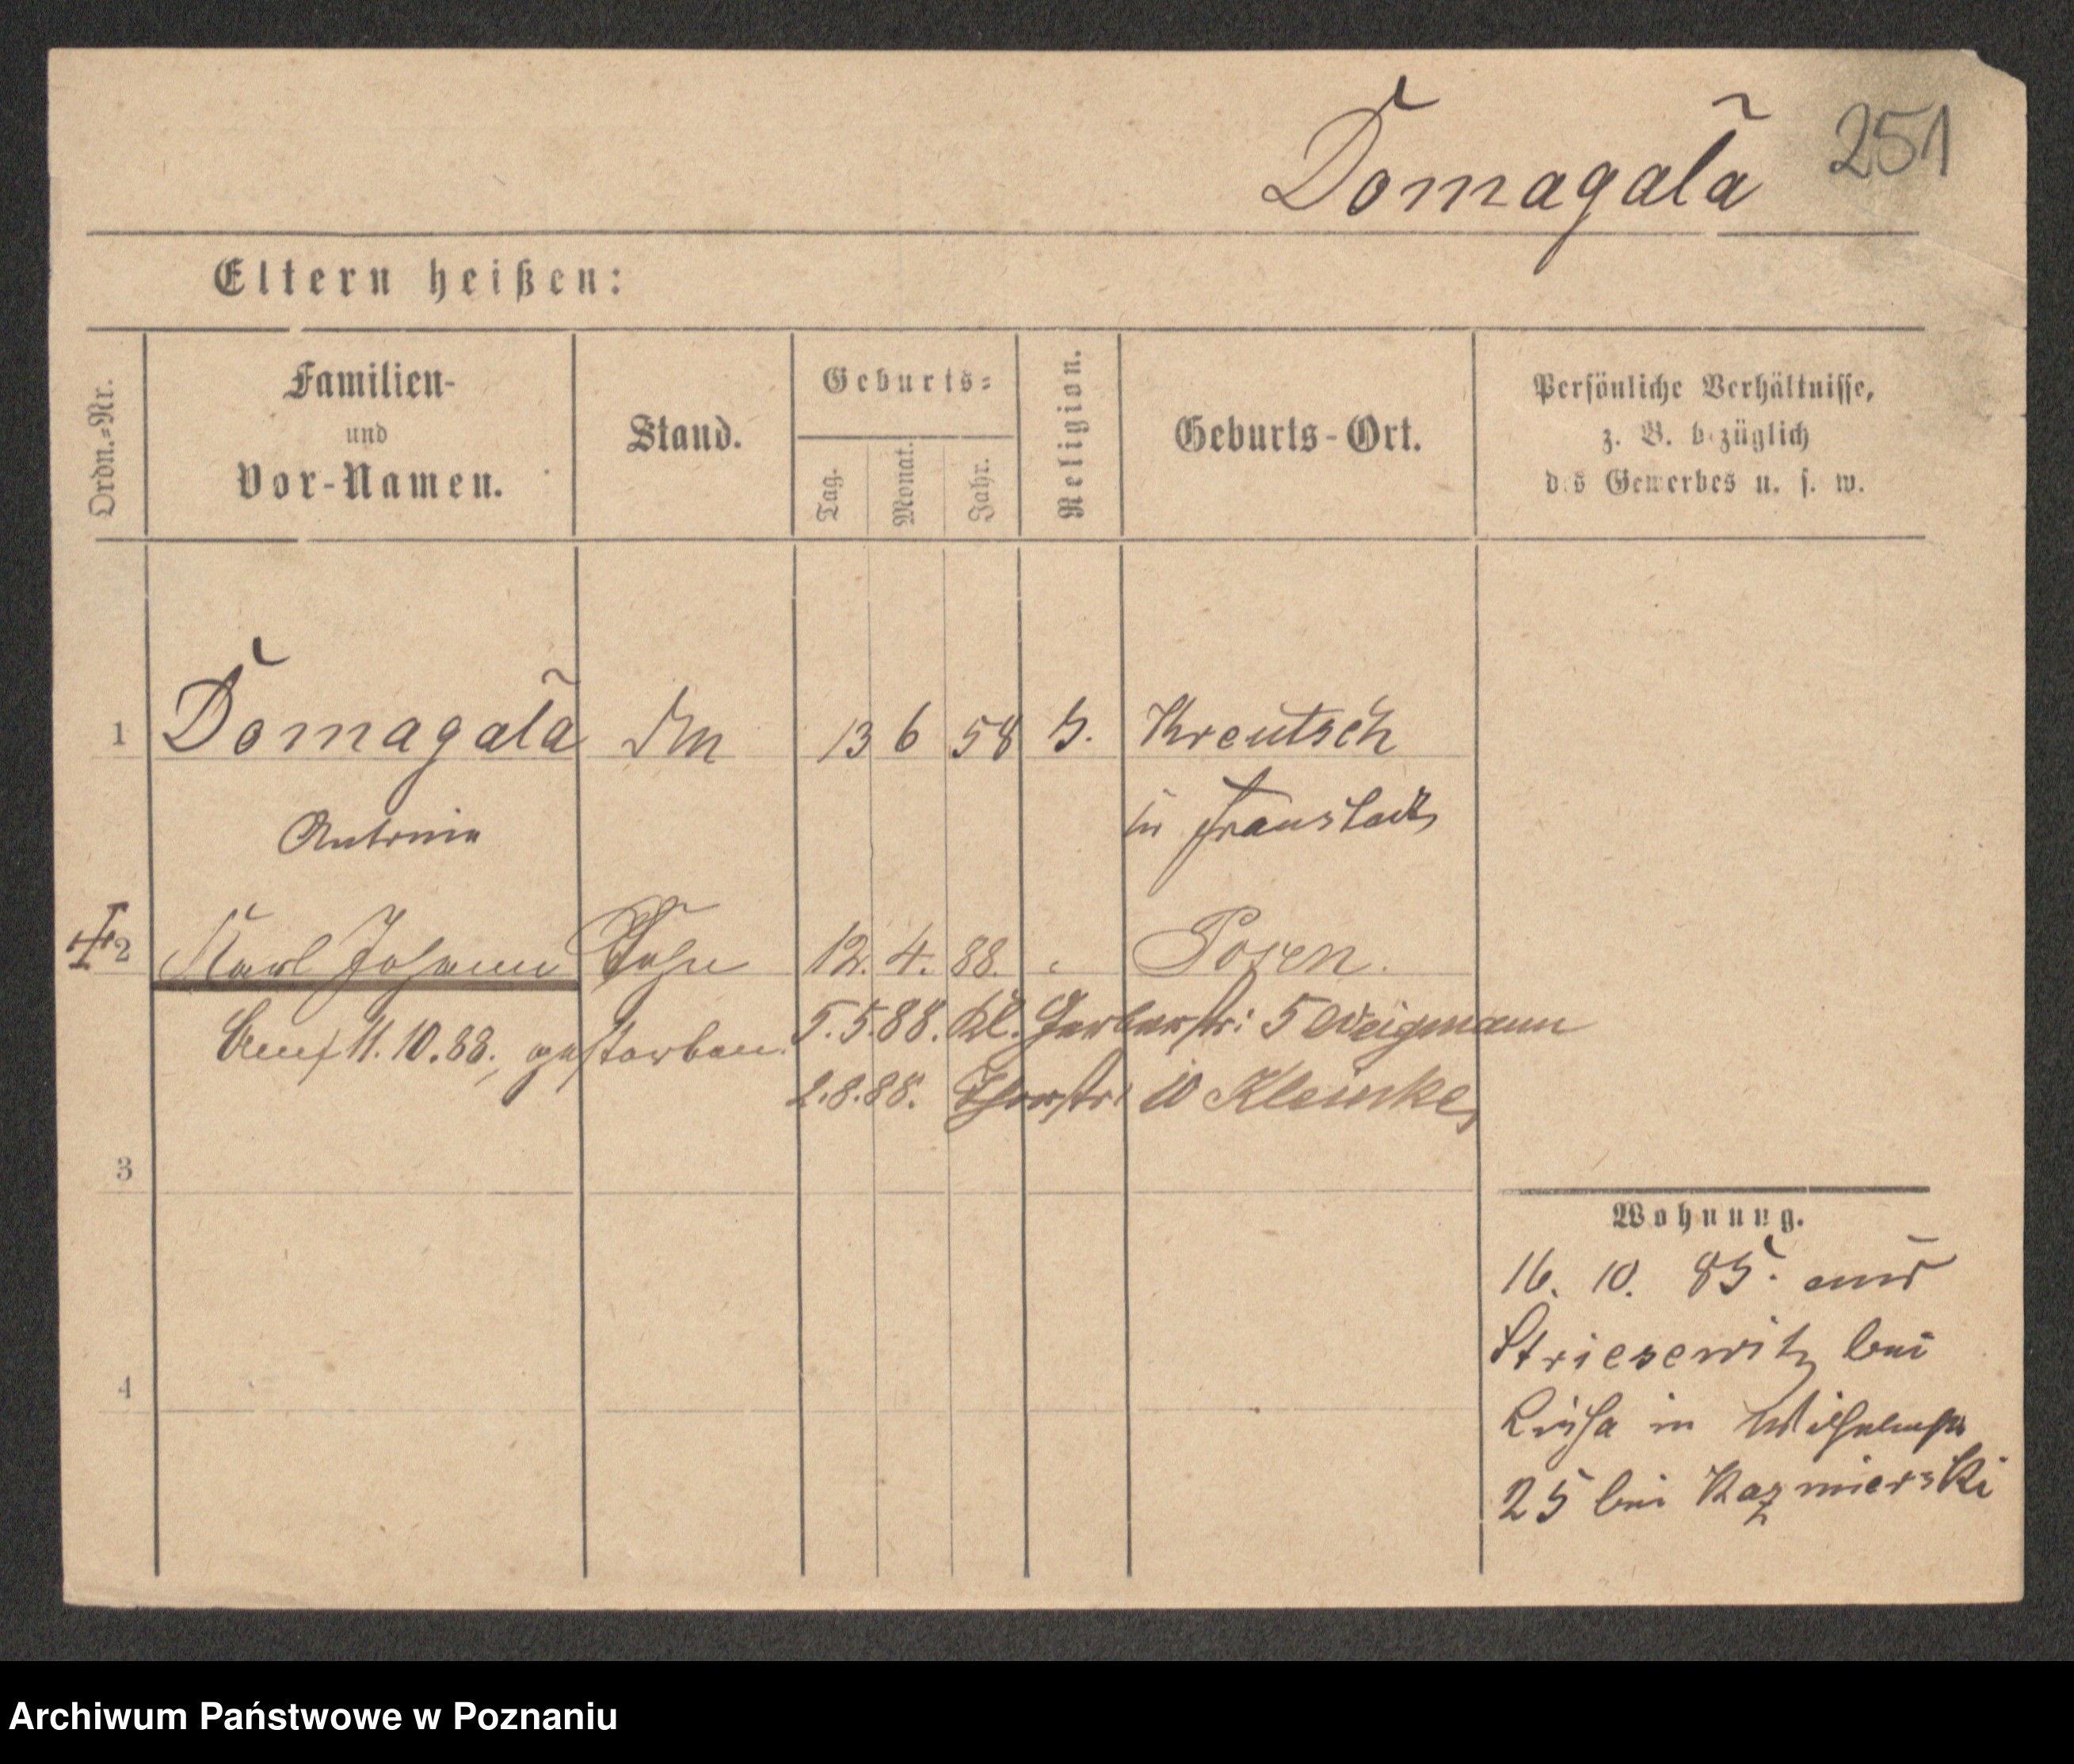 Domagala 251
Eltern heißen:
Ordn.-Nr.
Familien-
und
Vor-Namen.
Stand.
Geburts-
Tag.
Monat.
Jahr.
Religion.
Geburts-Ort.
Persönliche Verhältnisse,
z. B. bezüglich
des Gewerbes u. s. w.
1 Domagala 13 6 58 Kreutsch
Antonia in Fraustadt
2 Karl Johann Sohn 12. 4. 88. Posen.
11.10.88. gestorben.
5.5.88. Kl. Gerberstr: 5 Weigmann
2.8.88. Thorstr: 10 Kleinke
3
4
Wohnung.
16. 10. 85. aus
Striesewitz bei
Lissa in Wilhelmstr
25 bei Kazmierski
Archiwum Państwowe w Poznaniu